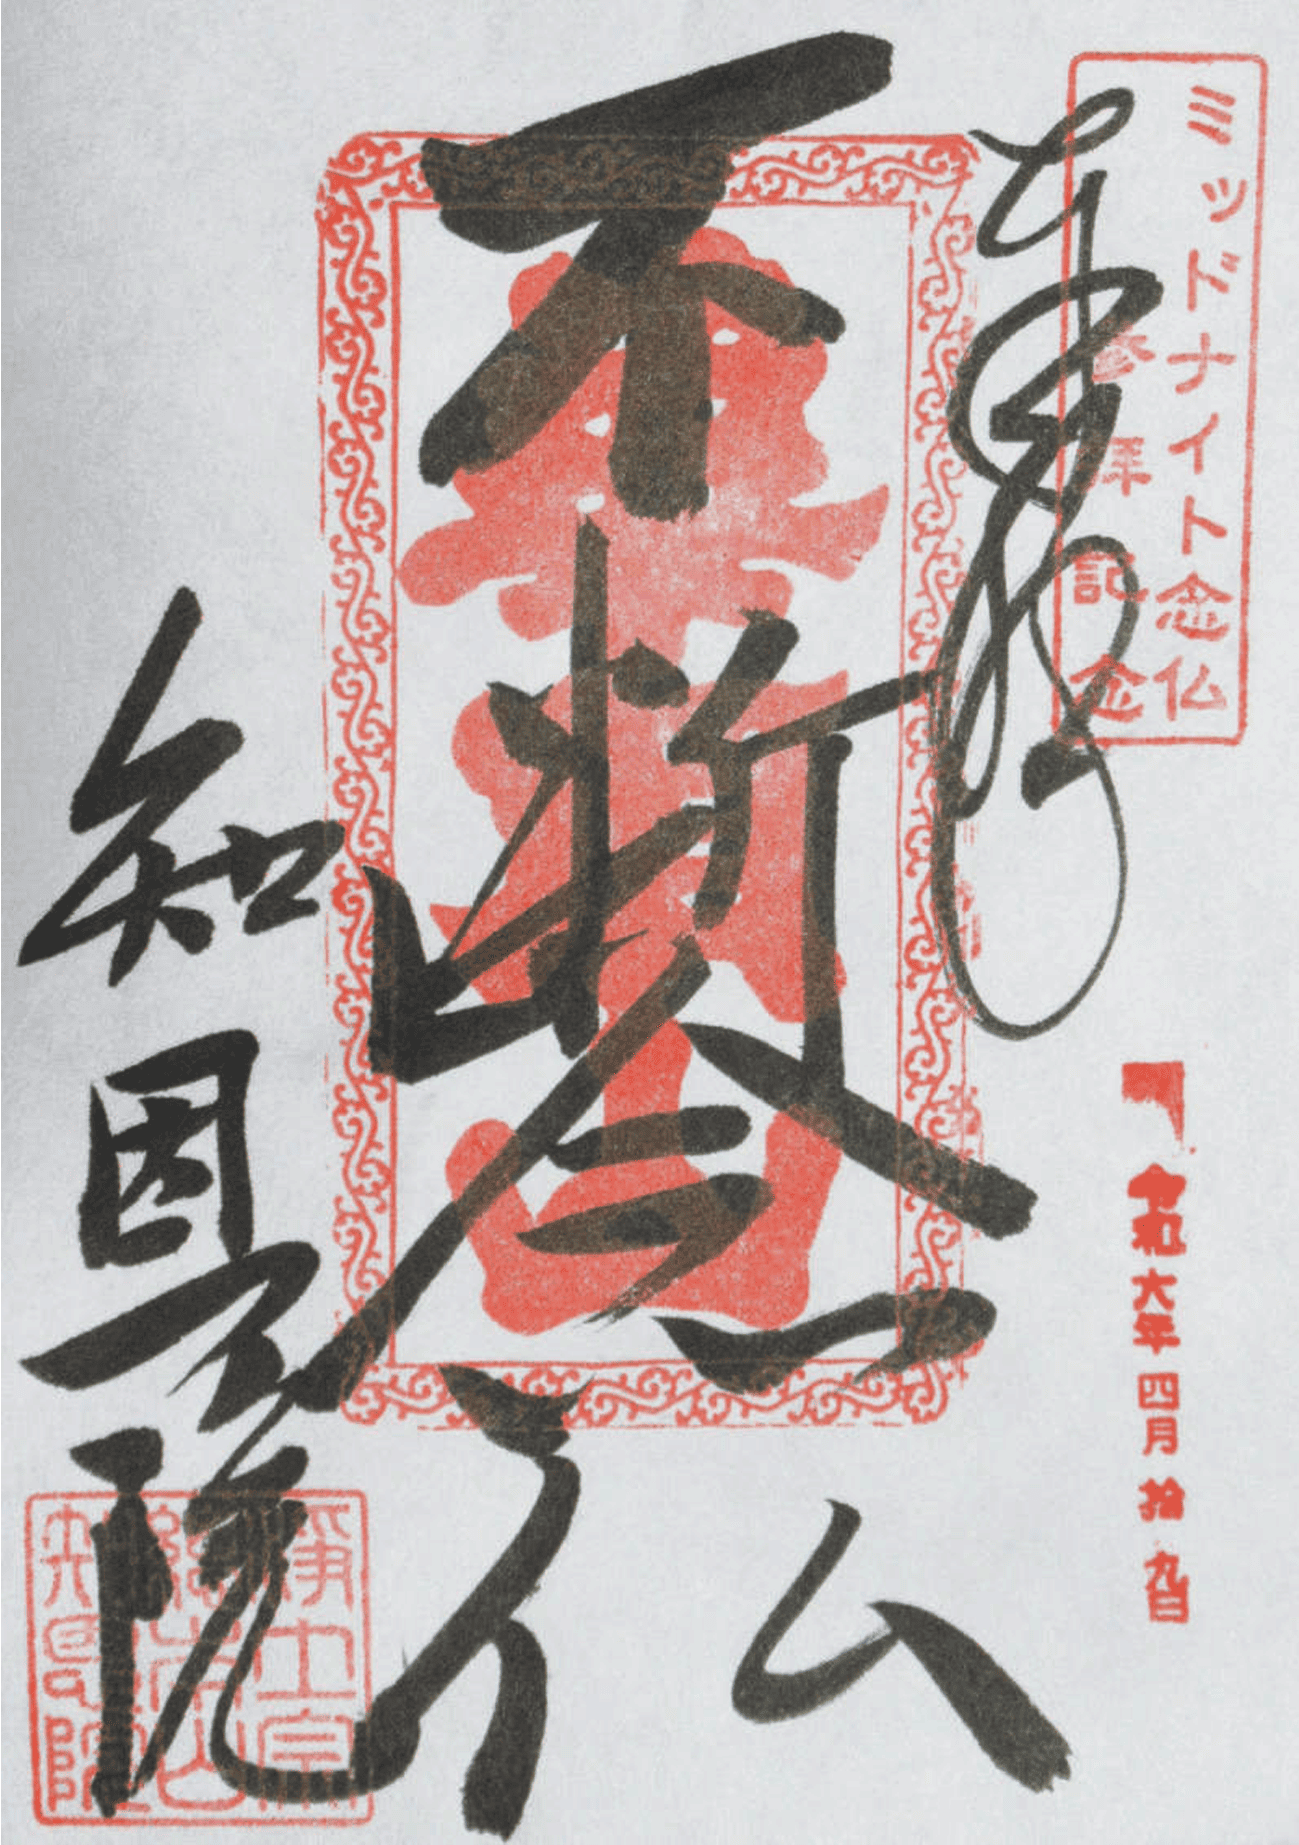 ミッドナイト念仏
参拝記念
奉拝
令和六年四月拾九日
不断念仏
華頂山
知恩院
浄土宗
総本山
知恩院